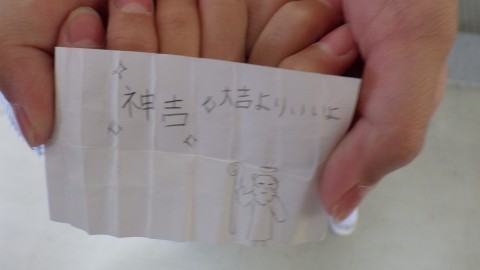 神吉 大吉よりいいよ